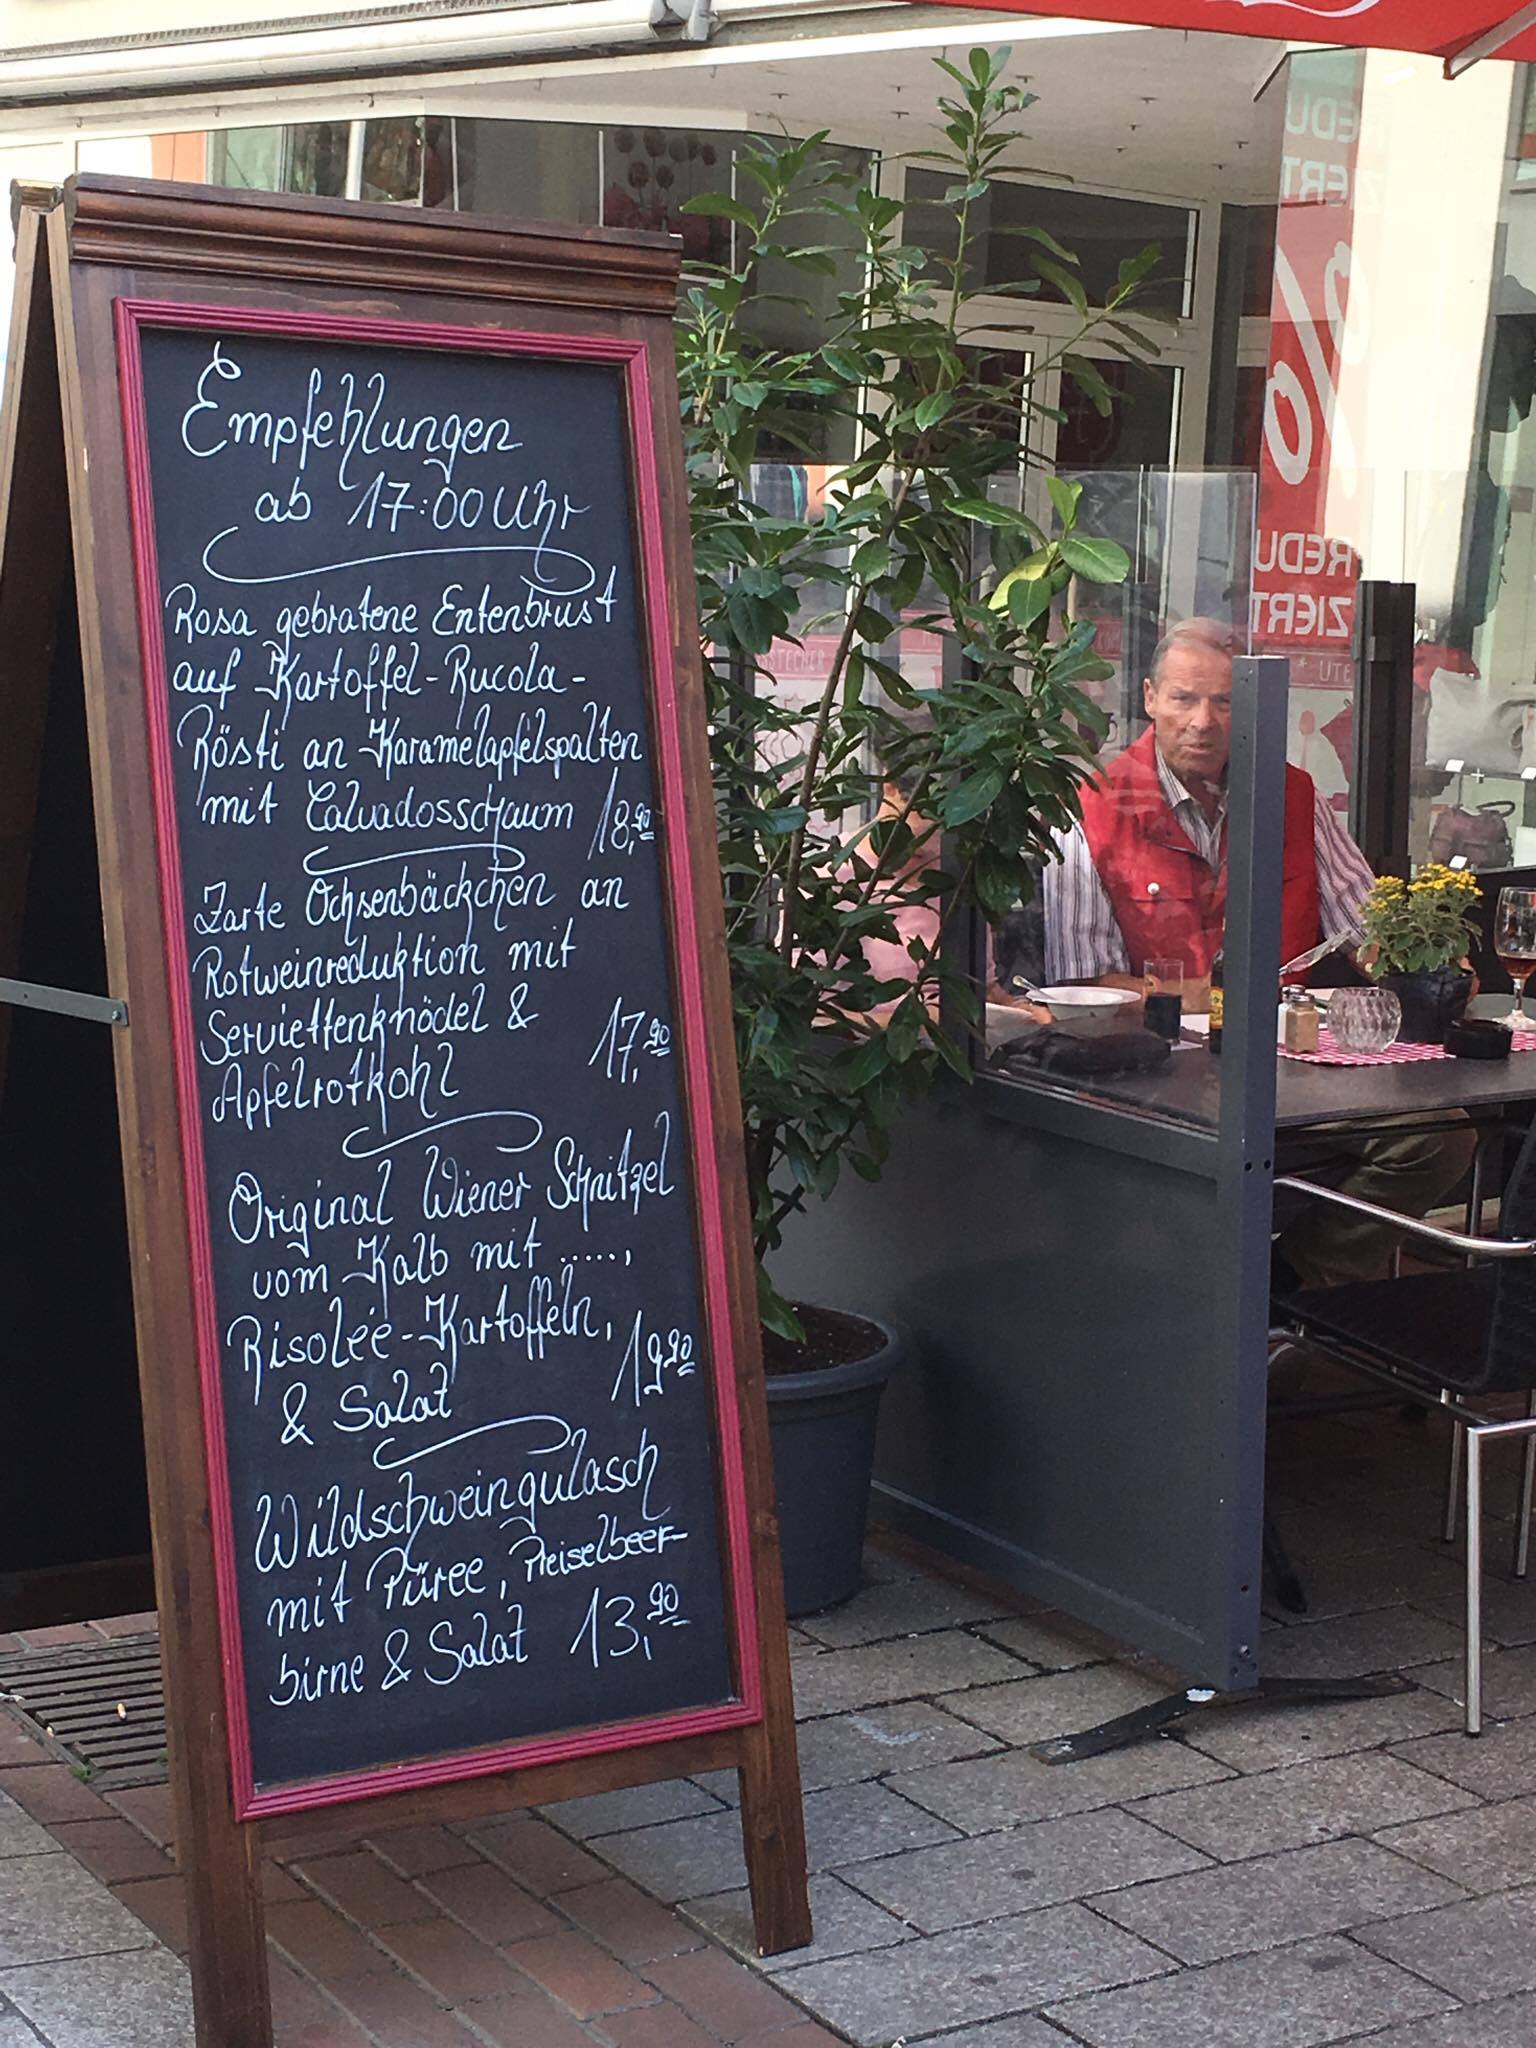 Empfehlungen
ab 17:00 Uhr
Rosa gebratene Entenbrust
auf Kartoffel-Rucola-
Rösti an Karamelapfelspalten
mit Calvadosschaum 18,90
Zarte Ochsenbäckchen an
Rotweinreduktion mit
Serviettenknödel &
Apfelrotkohl 17,90
Original Wiener Schnitzel
vom Kalb mit ......,
Risolée-Kartoffeln,
& Salat 19,90
Wildschweingulasch
mit Püree, Preiselbeer-
birne & Salat 13,90
REDU
ZIERT
%
REDU
ZIERT